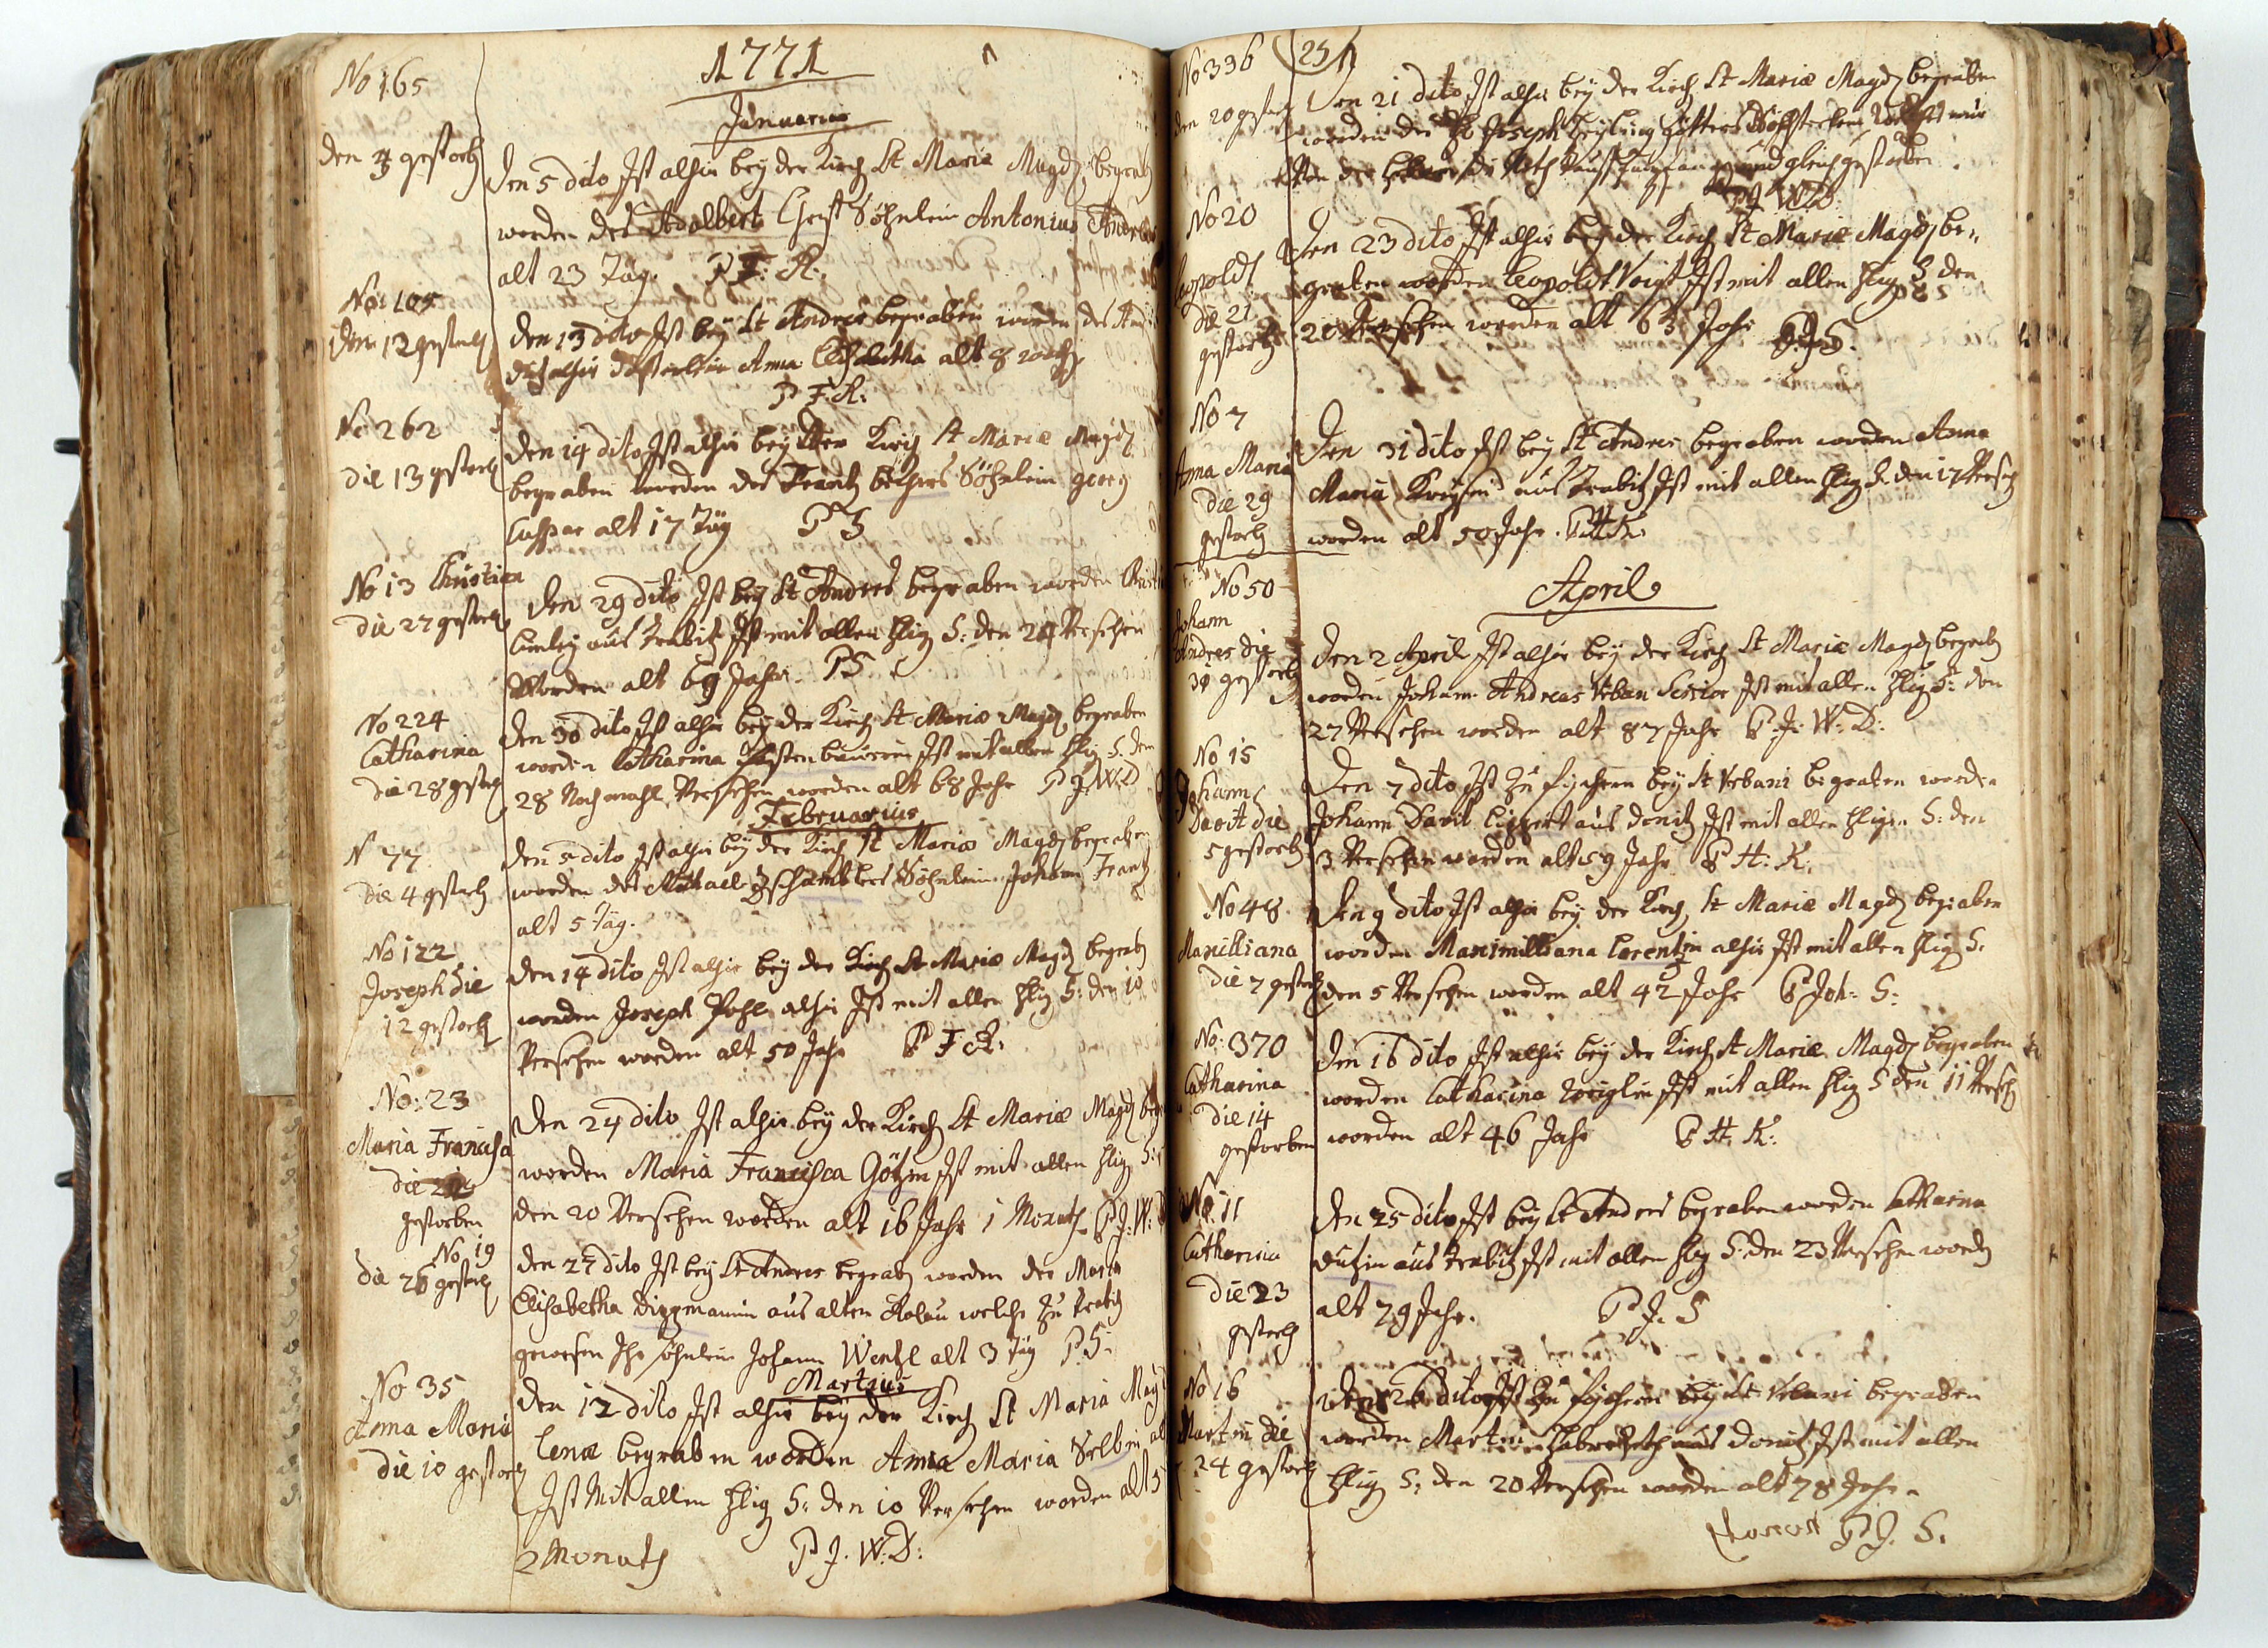 1771
Januarius
No 165
den 4 gestorb
Den 5 dito Ist alhir bey der Kirch St Mariæ Magd begrab
worden des Adalbert Christ Söhnlein Antonius Andreas
alt 23 Täg. P F: R:
den 12 gestorb
Den 13 dito Ist bey St Andres begraben worden des
alhir Anna Elisabetha alt 8 woch
P F: R:
No 262
die 13 gestorb
Den 14 dito Ist alhir bey der Kirch St Mariæ Magd
begraben worden des Frantz Söhnlein georg
Casspar alt 17 Täg P S
No 13 Christian
die 27 gestorb
Den 29 dito Ist bey St Andres begraben worden
aus Ist mit allen hlig S: den 24 Versehen
Worden alt 69 Jahr PS
No 224
Catharina
die 28 gestorb
Den 30 dito Ist alhir bey der Kirch St Mariæ Magd begraben
worden Catharina Ist mit allen hlig S. den
28 Noch mahl Versehen worden alt 68 Jahr P J: W: D
Februarius
N 77
die 4 gestorb
Den 5 dito Ist alhir bey der Kirch St Mariæ Magd begraben
worden des Söhnlein Johann Frantz
alt 5 Täg.
No 122
Joseph die
12 gestorb
Den 14 dito Ist alhir bey der Kirch St Mariæ Magd begrab
worden Joseph Pohl alhir Ist mit allen hlig S: den 10
Versehen worden alt 50 Jahr P F R:
No: 23
Maria Francisca
die
gestorben
Den 24 dito Ist alhir bey der Kirch St Mariæ Magd
worden Maria Francisca Götzin Ist mit allen hlig S:
den 20 Versehen worden alt 16 Jahr 1 Monath P J: W:
No 19
die 26 gestorb
Den 27 dito Ist bey St Andres begrab worden der Maria
Elisabetha Dippmanin aus alten welche zu
gewesen Ihr söhnlein Johann Wentzl alt 3 Täg P: S:
Martzius
No 35
Anna Maria
die 10 gestorb
Den 12 dito Ist alhir bey der Kirch St Maria Mag
lenæ begraben worden Anna Maria Selbin
Ist Mit allen hlig S: den 10 Versehen worden alt 5
2 Monath P J. W: D:
No 396
251
den 20 gestorb
Den 21 dito Ist alhir bey der Kirch St Mariæ Magd begraben
worden des Joseph
und gleich gestorben
P J W: D:
No 20
Leopoldt
die 21
gestorb
Den 23 dito Ist alhir bey der Kirch St Mariæ Magd be:
graben worden Leopoldt Voigt Ist mit allen hlig S den
20 Versehen worden alt 63 Jahr P: J: S.
No 7
Anna Maria
die 29
gestorb
Den 31 dito Ist bey St Andres begraben worden Anna
Maria aus Ist mit allen hlig S. den 17 Verseh
worden alt 50 Jahr. P H: K:
April
No 50
Johann
Andres die
30 gestorb
Den 2 April Ist alhir bey der Kirch St Mariæ Magd begrab
worden Johann Andreas Urban Senior Ist mit allen hlig S: den
27 Versehen worden alt 87 Jahr P. J: W: D:
No 15
Johann
Davit die
5 gestorb
Den 7 dito Ist zu bey St Urbani begraben worden
Johann Davit Lippert aus Donitz Ist mit allen hligen S: den
3 Versehen worden alt 59 Jahr P H: K:
No 48
Maximilliana
die 7 gestorb
Den 9 dito Ist alhir bey der Kirch St Mariæ Magd begraben
worden Maximilliana Lorentzin alhir Ist mit allen hlig S:
den 5 Versehen worden alt 42 Jahr P Joh: S:
No: 370
Catharina
die 14
gestorben
Den 16 dito Ist alhir bey der Kirch St Mariæ Magd begraben
worden Catharina Ist mit allen hlig S den 11 Verseh
worden alt 46 Jahr P H. K:
No. 11
Catharina
die 23
gestorb
Den 25 dito Ist bey St Andres begraben worden Catharina
aus Ist mit allen hlig S: den 23 Versehen word
alt 79 Jahr. P J. S
No 16
Martin die
24 gestorb
Den 26 dito Ist zu bey St Urbani begraben
worden Martin aus Donitz Ist mit allen
hlig S: den 20 Versehen worden alt 78 Jahr
P J. S.